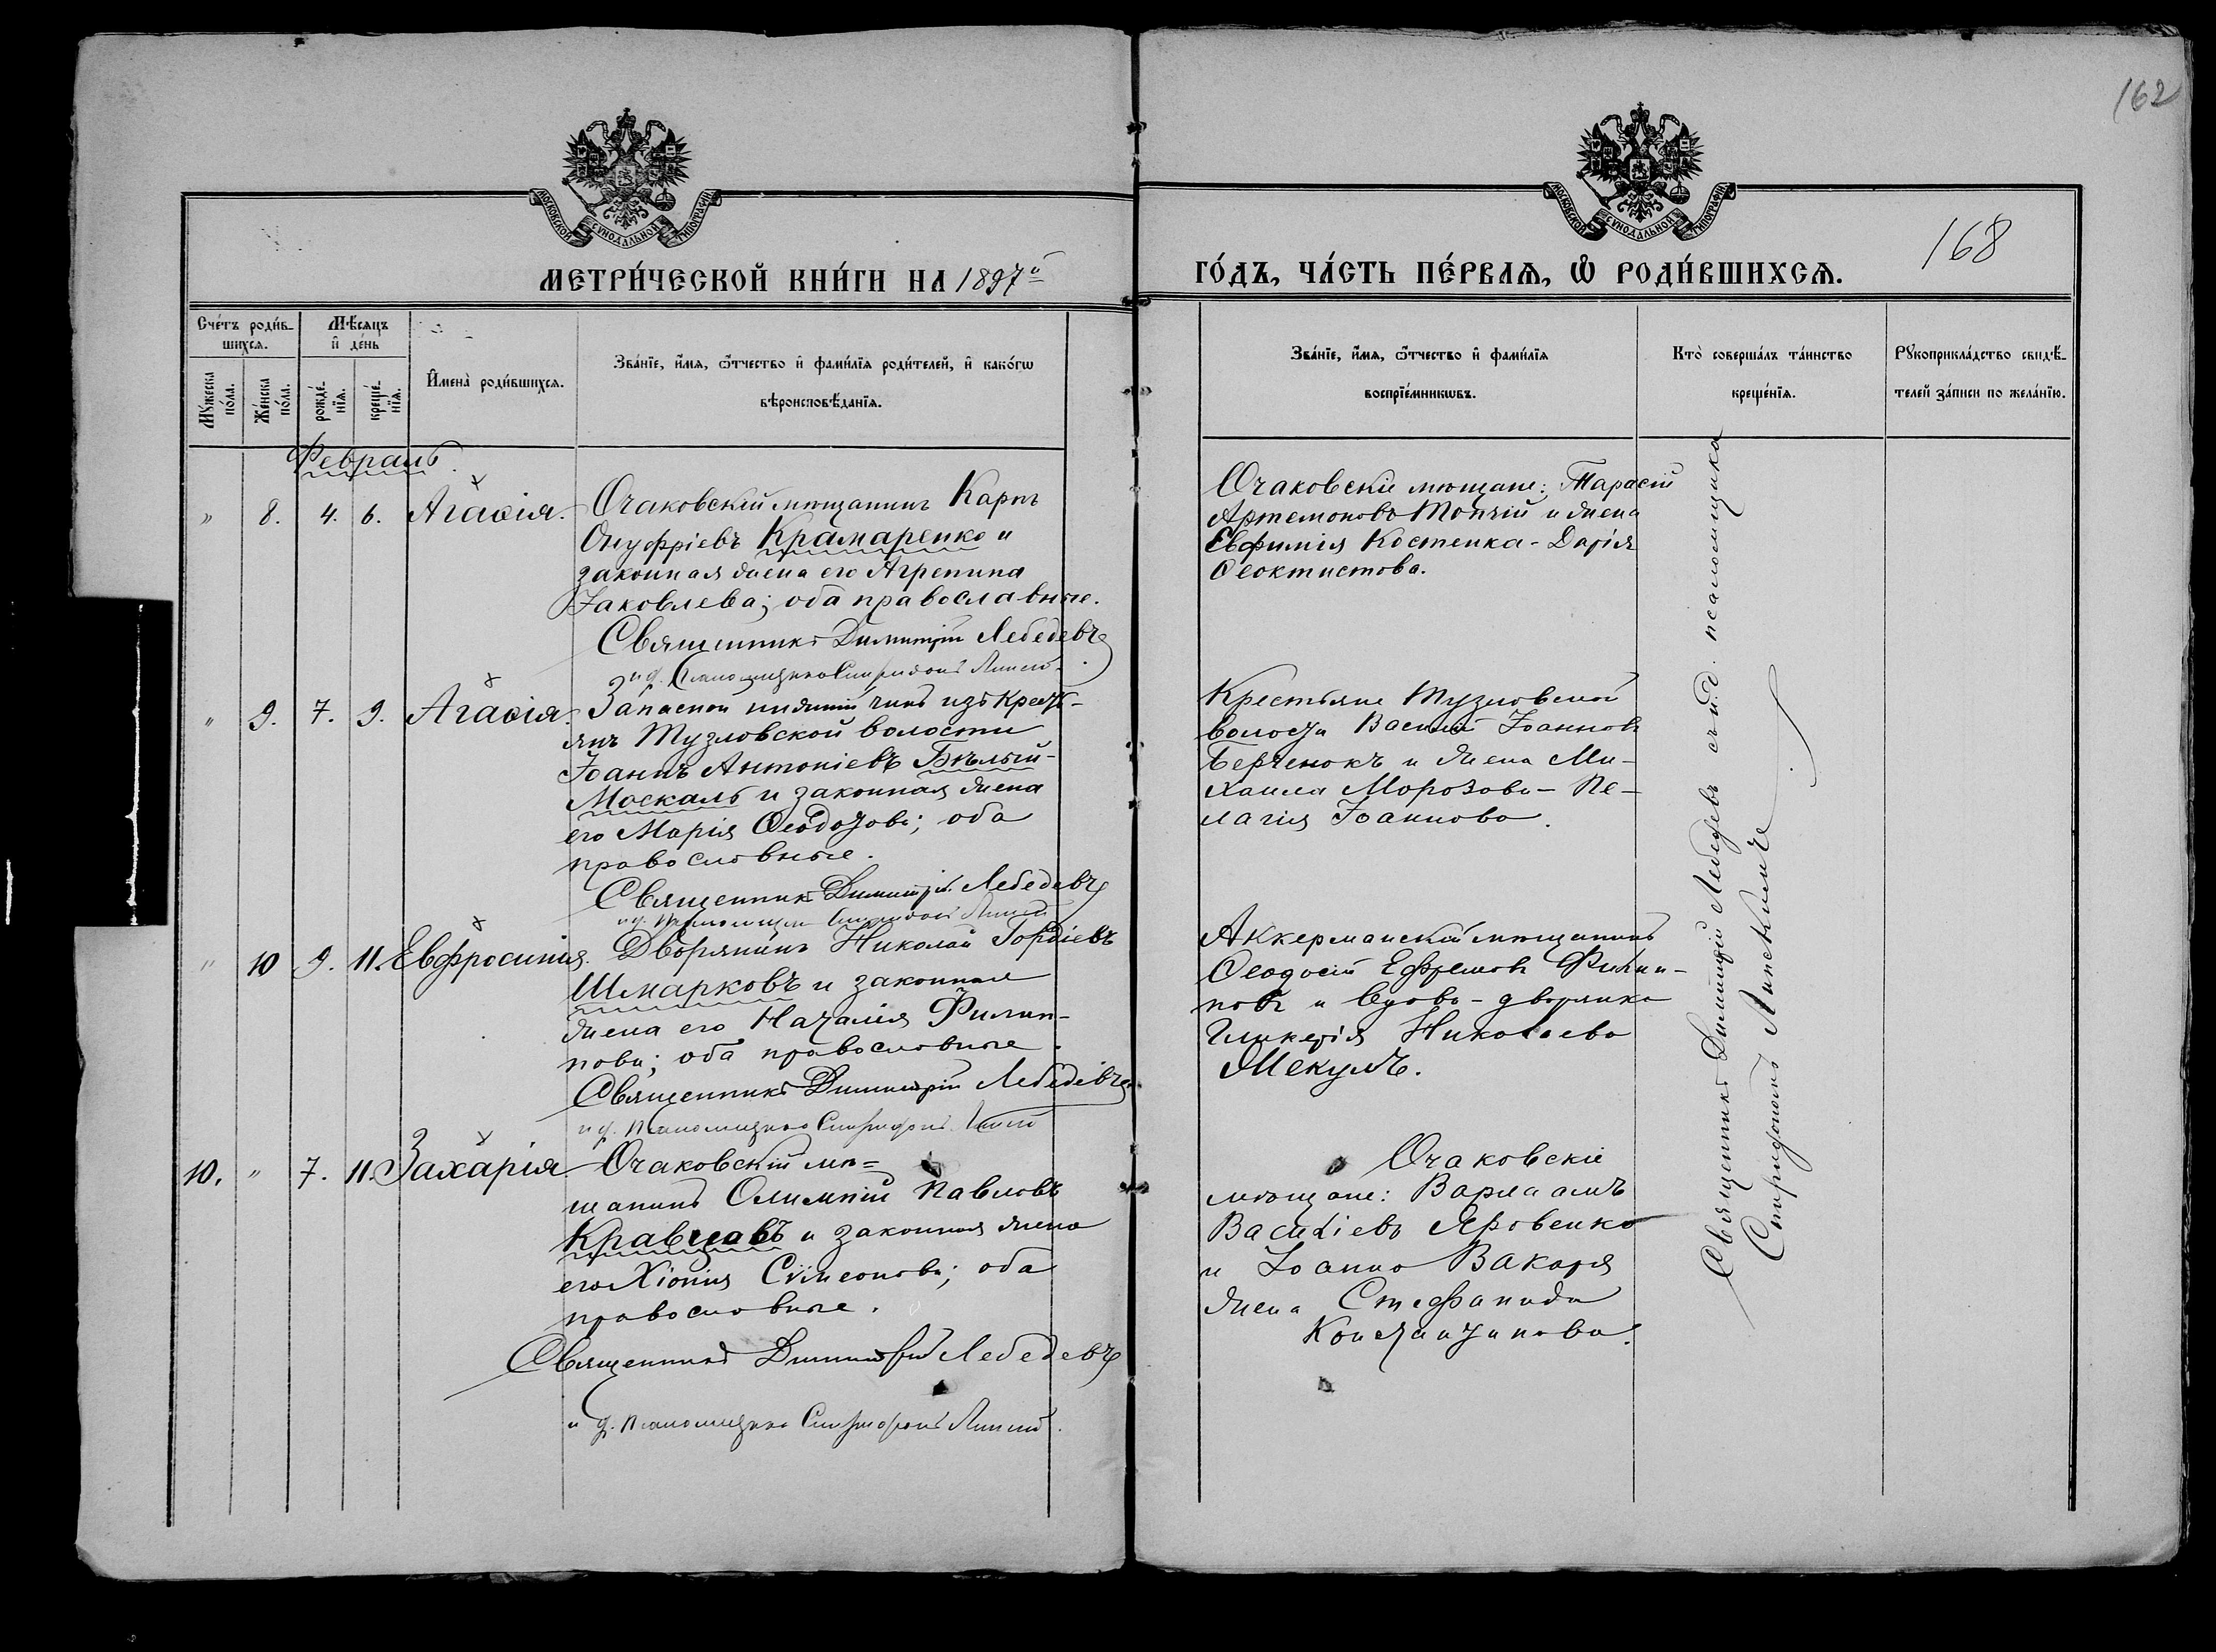 162
МОСКОВСКОЙ СУНОДАЛЬНОЙ ТИПОГРАФІИ
МОСКОВСКОЙ СУНОДАЛЬНОЙ ТИПОГРАФІИ
168
МЕТРИ́ЧЕСКОЙ КНИ́ГИ НА 1897й
ГО́ДЪ, ЧА́СТЬ ПЕ́РВАѦ, Ѡ РОДИ́ВШИХСѦ.
Сче́тъ роди́в-
шихсѧ.
Мꙋ́жеска по́ла.
Же́нска по́ла.
Мѣ́сѧцъ
и҆ де́нь
рожде́-
нїѧ.
креще́-
нїѧ.
И҆мена̀ роди́вшихсѧ.
Зва́нїе, и҆́мѧ, ѻ҆́тчество и҆ фами́лїѧ роди́телей, и҆ како́гѡ
вѣроисповѣ́данїѧ.
Зва́нїе, и҆́мѧ, ѻ҆́тчество и҆ фами́лїѧ
воспрїе́мникѡвъ.
Кто̀ соверша́лъ та́инство
креще́нїѧ.
Рꙋкоприкла́дство свидѣ́-
телей за́писи по жела́нїю.
Февраль.
" 8. 4. 6. Агаѳія.
Очаковскій мѣщанинъ Карпъ
Онуфріевъ Крамаренко и
законная жена его Агрепина
Іаковлева; оба православные.
Священникъ Димитрій Лебедевъ
и д. псаломщика Спиридонъ Липскій
Очаковскіе мѣщане: Тарасій
Артемоновъ Топчій и жена
Евфимія Костенка - Дарія
Ѳеоктистова.
" 9. 7. 9. Агаѳія.
Запасной нижній чинъ изъ крестъ-
янъ Тузловской волости
Іоаннъ Антоніевъ Бѣлый-
Москаль и законная жена
его Марія Ѳеодотова; оба
православные.
Священникъ Димитрій Лебедевъ
и д. псаломщика Спиридонъ Липскій
Крестьяне Тузловской
волости Василій Іоанновъ
Берченокъ и жена Ми-
хаила Морозова - Пе-
лагія Іоаннова.
" 10 9. 11. Евфросинія.
Дворянинъ Николай Гордіевъ
Шмарковъ и законная
жена его Наталія Филип-
пова; оба православные.
Священникъ Димитрій Лебедевъ
и д. псаломщика Спиридонъ Липскій
Аккерманскій мѣщанинъ
Ѳеодосій Ефремовъ Филип-
повъ и вдова - дворянка
Гликерія Николаева
Мекулъ.
10. " 7. 11. Захарія
Очаковскій мѣ-
щанинъ Олимпій Павловъ
Кравцовъ и законная жена
его Хіонія Сѵмеонова; оба
православные.
Священникъ Димитрій Лебедевъ
и д. псаломщика Спиридонъ Липскій.
Очаковскіе
мѣщане: Варлаамъ
Василіевъ Яровенко
и Іоанна Вакаря
жена Стефанида
Константинова.
Священникъ Димитрій Лебедевъ съ и. д. псаломщика
Спиридономъ Липскимъ